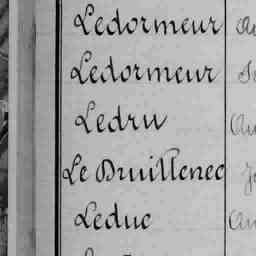 Ledormeur
Ledormeur
Ledru
Le Druillenec
Leduc